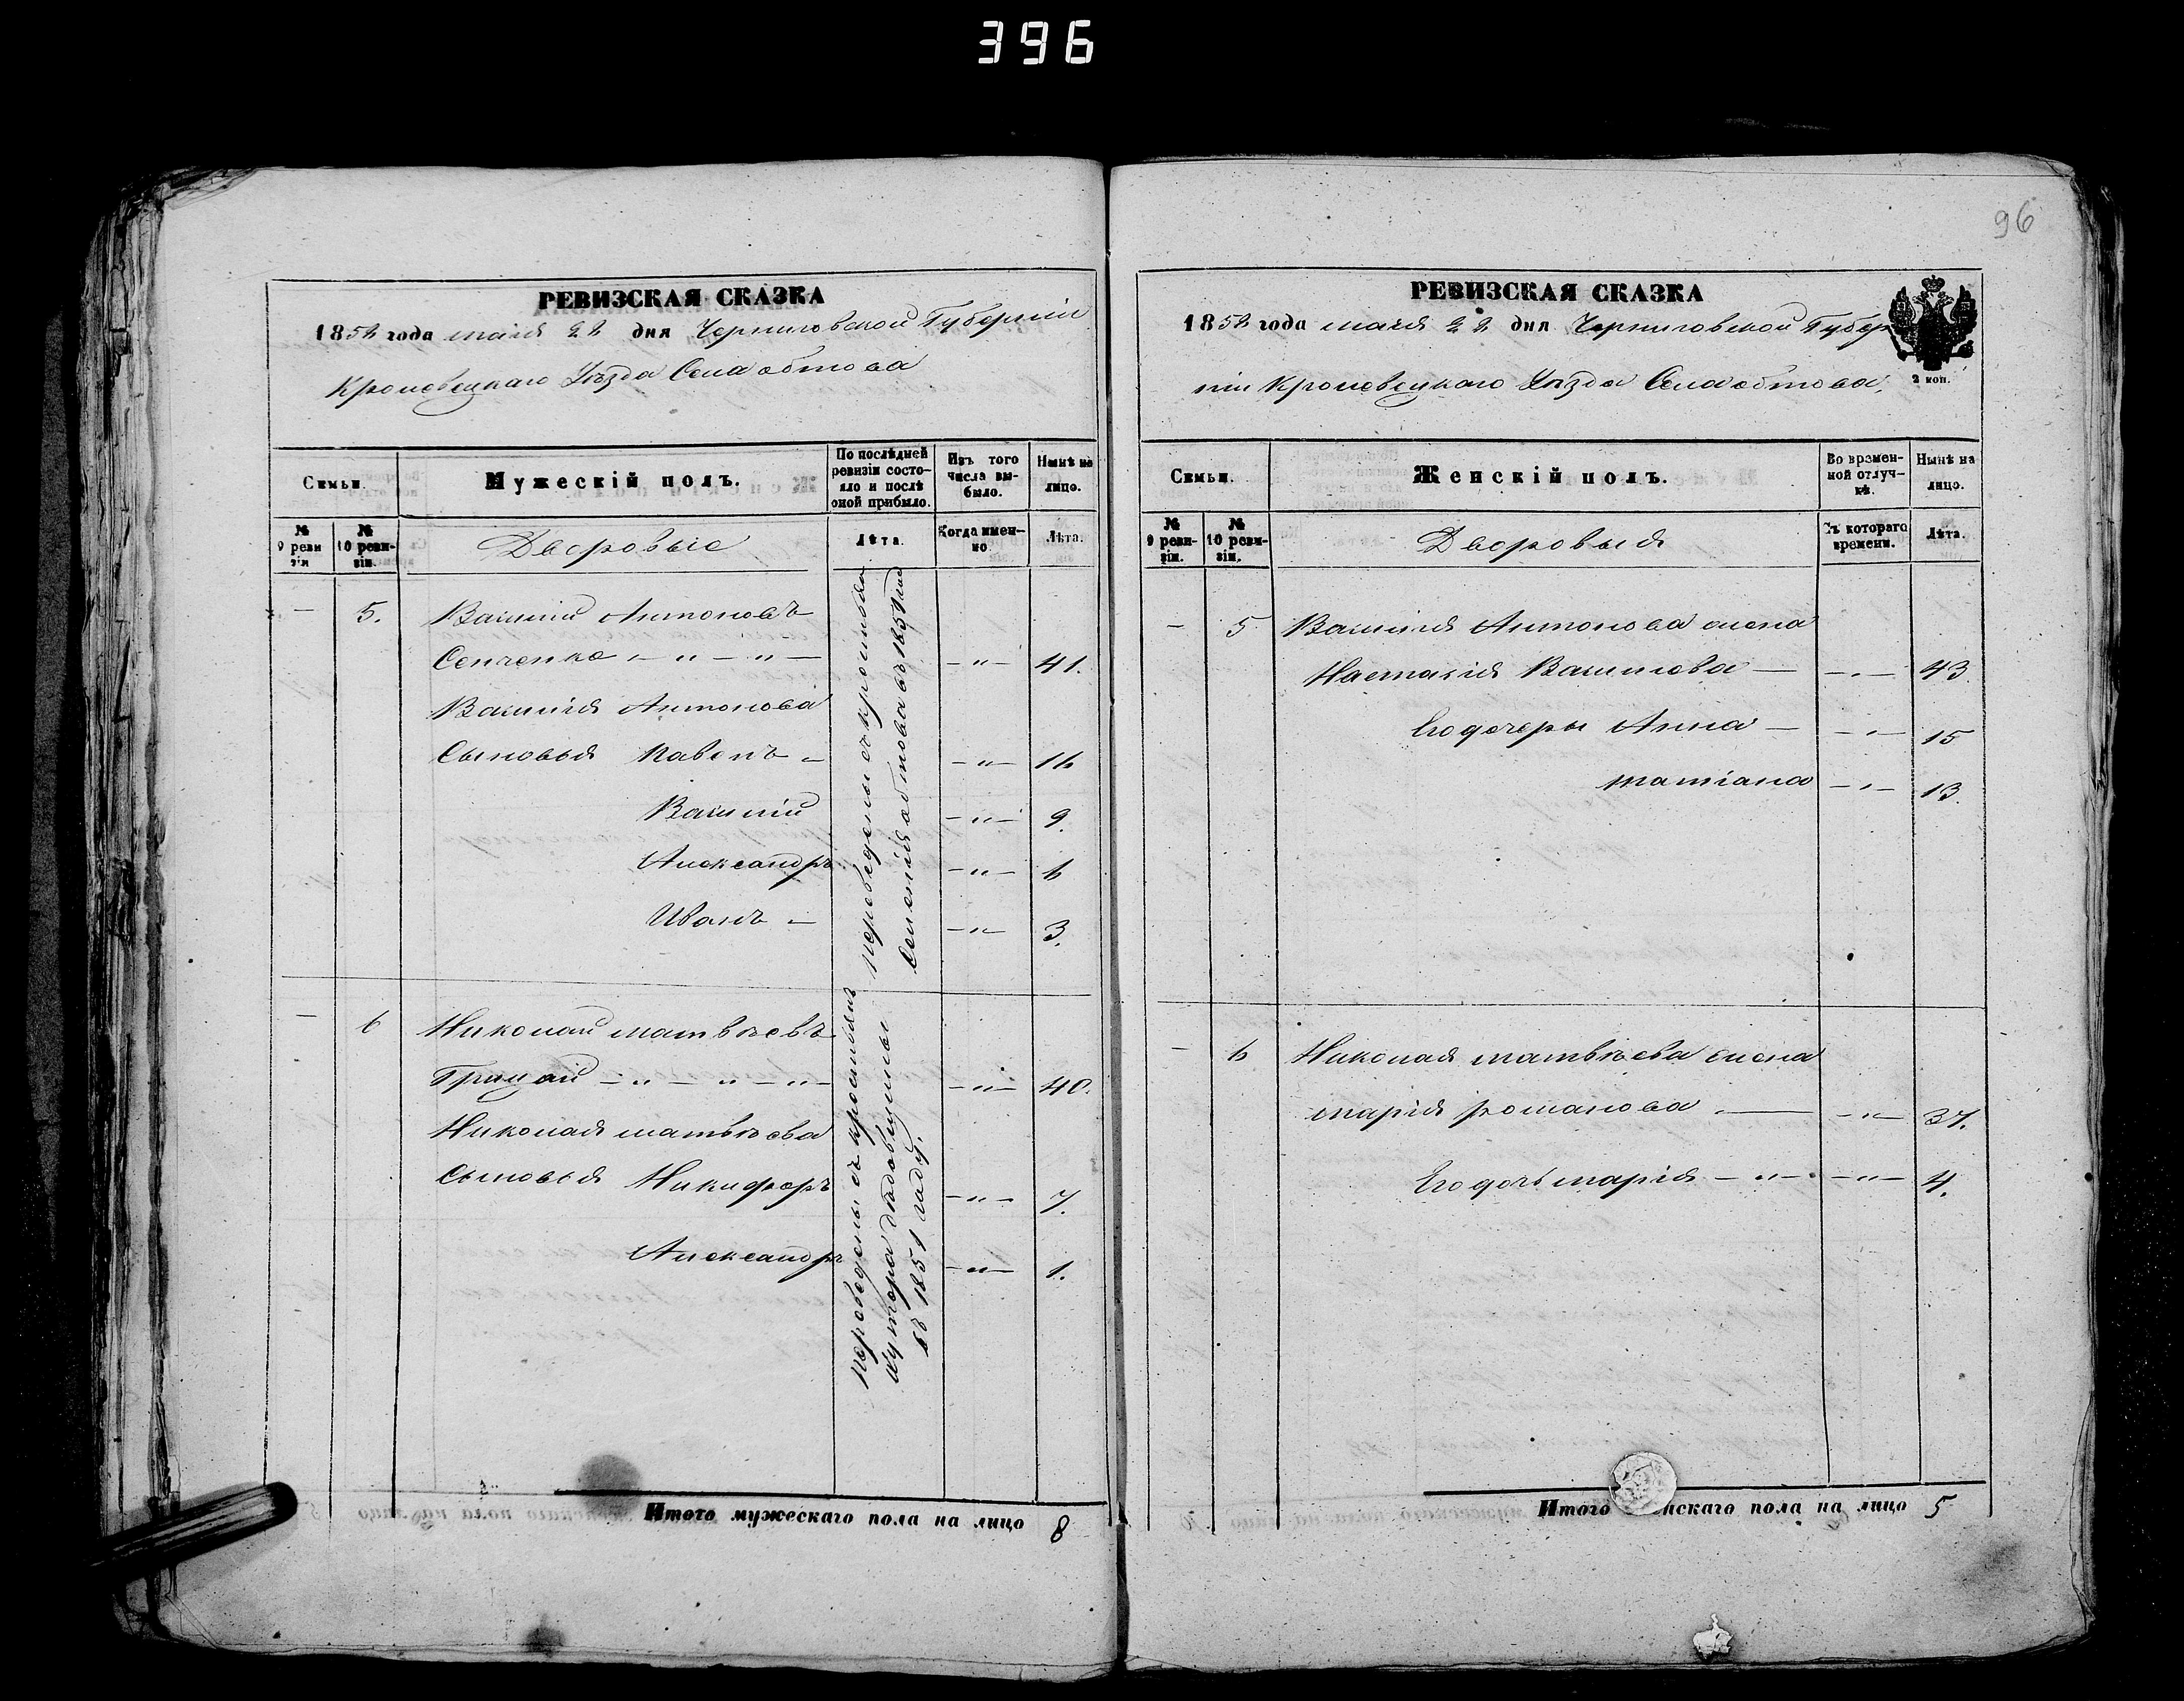 396
96
РЕВИЗСКАЯ СКАЗКА
1858 года маія 22 дня Черниговской Губерніи
Кролевецкаго Уѣзда Села обтова
Семьи.
Мужескій полъ.
По послѣдней ревизіи состояло и послѣ оной прибыло.
Изъ того числа выбыло.
Нынѣ на лицо.
№ 9 ревизіи
№ 10 ревизіи.
Дворовые
Лѣта.
Когда именно.
Лѣта.
— 5. Василий Антоновъ
Сенченко — " — " — — " — 41.
Василия Антонова
Сыновья Павелъ — — " — 16
Василий — " — 9.
Александръ — " — 6
Иванъ — — " — 3.
переведены съ крестьянъ
Селенія обтова въ 1851 году
— 6 Николай матвѣевъ
Грицай — " — " — " — — " — 40.
Николая матвѣева
Сыновья Никифоръ — " — 7.
Александръ — " — 1.
переведены съ крестьянъ
хутора
въ 1851 году.
Итого мужескаго пола на лицо 8
РЕВИЗСКАЯ СКАЗКА
1858 года маія 22 дня Черниговской Губер
ніи Кролевецкаго Уѣзда Села обтова,
2 коп.
Семьи.
Женскій полъ.
Во временной отлучкѣ.
Нынѣ на лицо.
№ 9 ревизіи.
№ 10 ревизіи.
Дворовыя
Съ котораго времени.
Лѣта.
— 5 Василия Антонова жена
Настасія Василиова — — " — 43
Его дочери Анна — — " — 15
матіана — " — 13.
— 6 Николая матвѣева жена
марія романова — — " — 37.
Его дочь марія — " — — " — 4.
Итого женскаго пола на лицо 5